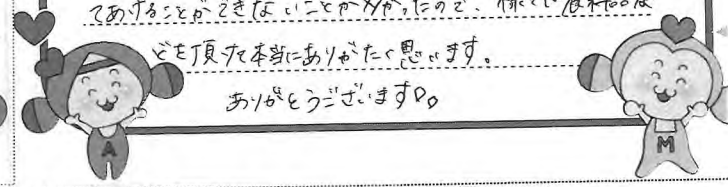 てあげることができないことが多かったので、様々な食料品な
どを頂けて本当にありがたく思います。
ありがとうございます
A
M